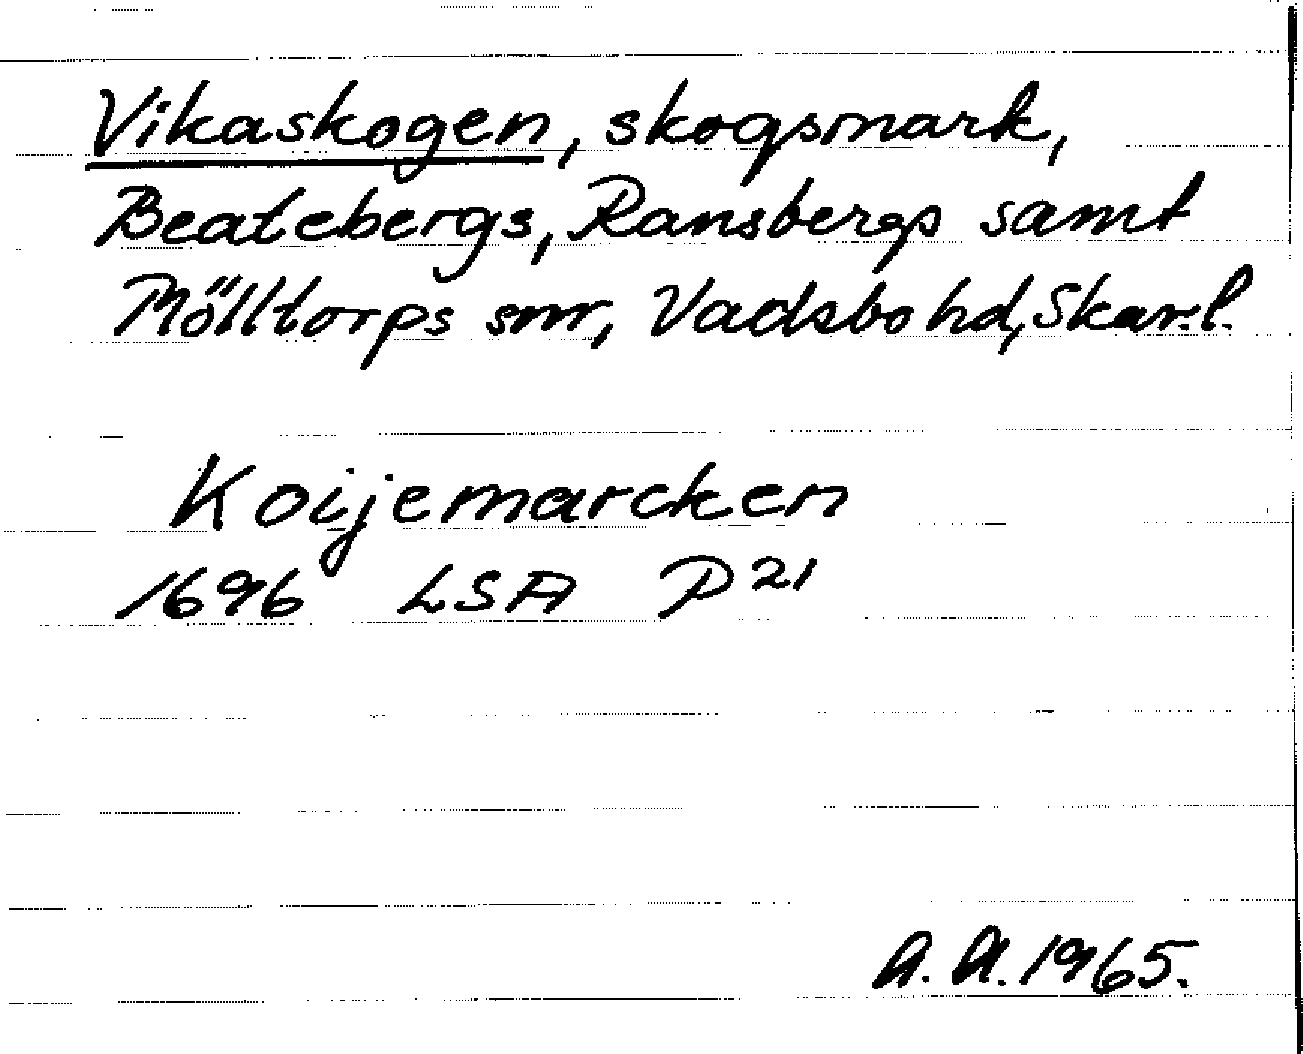 Vikaskogen, skogsmark,
Beatebergs, Ransbergs samt
Mölltorps snr, Vadsbo hd, Skar.l.
Koijemarcken
1696 LSA P21
A.A. 1965.